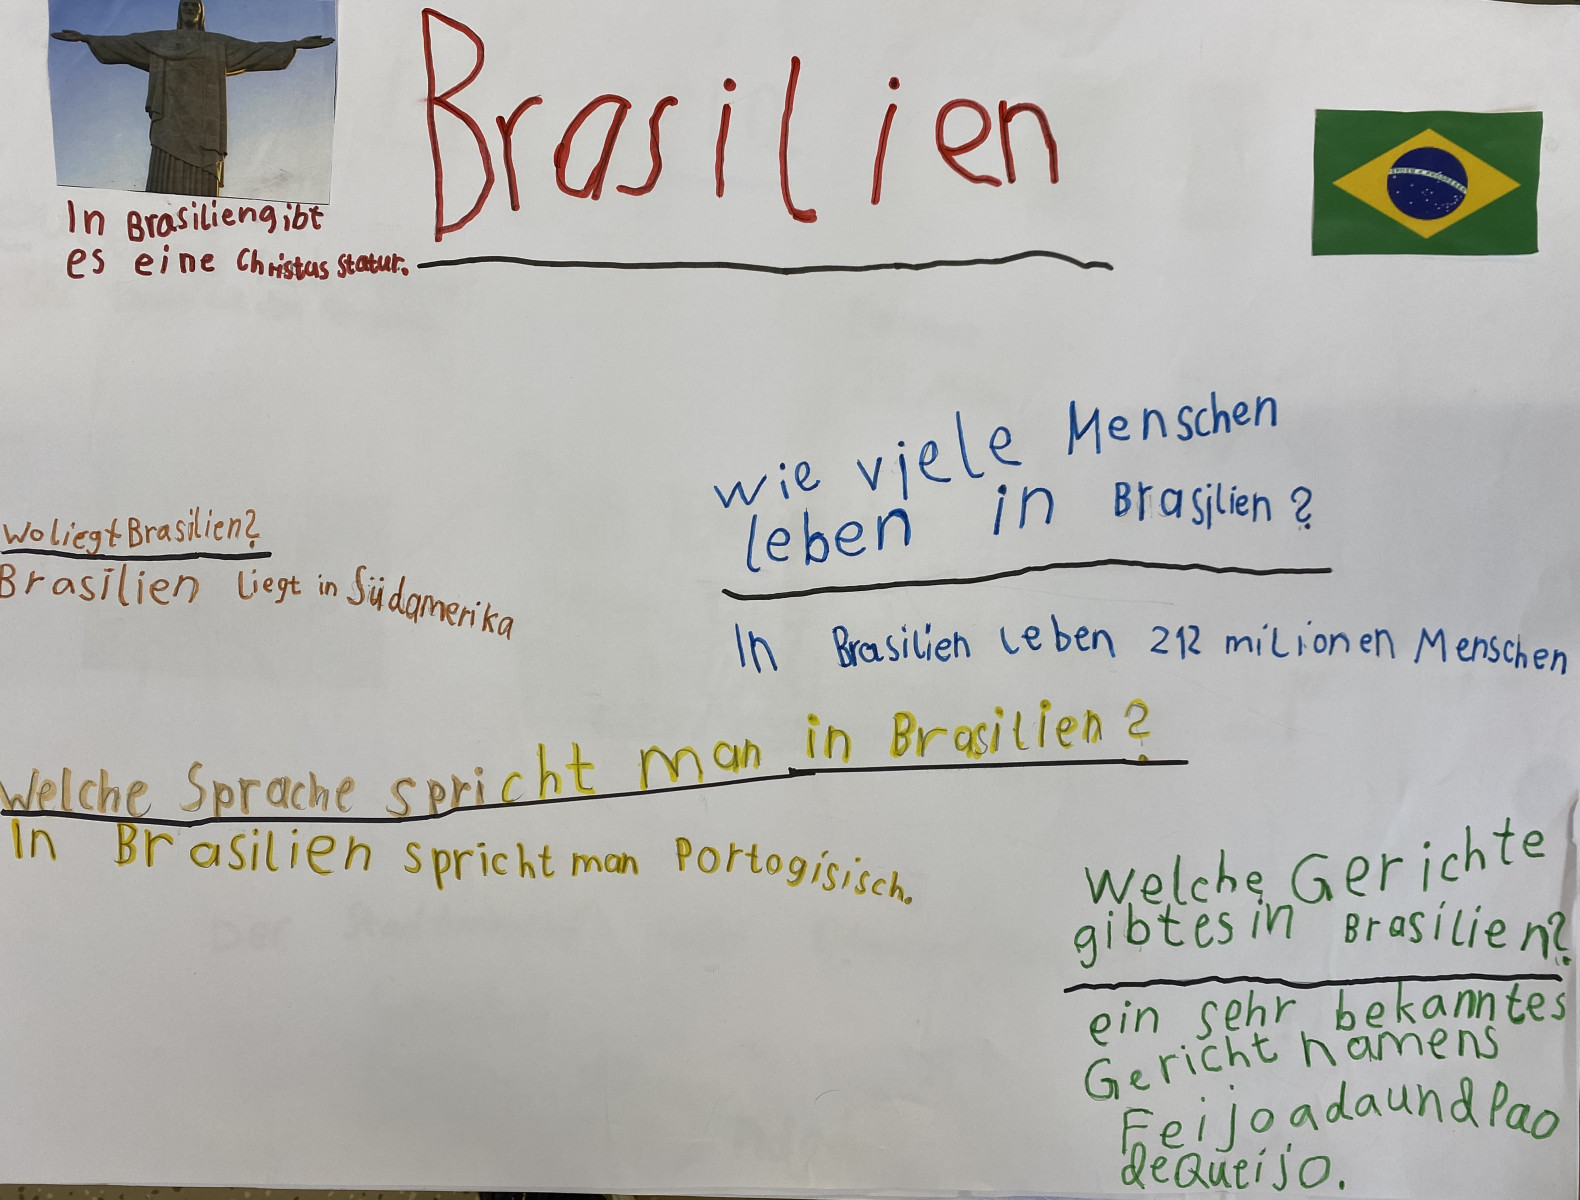 Brasilien
In Brasiliengibt
es eine Christus statur.
wie viele Menschen
leben in Brasilien?
In Brasilien leben 212 milionen Menschen
WoliegtBrasilien?
Brasilien liegt in Südamerika
Welche Sprache spricht man in Brasilien?
In Brasilien spricht man Portogisisch.
Welche Gerichte
gibtesin Brasilien?
ein sehr bekanntes
Gericht namens
Feijoadaund Pao
deQueijo.